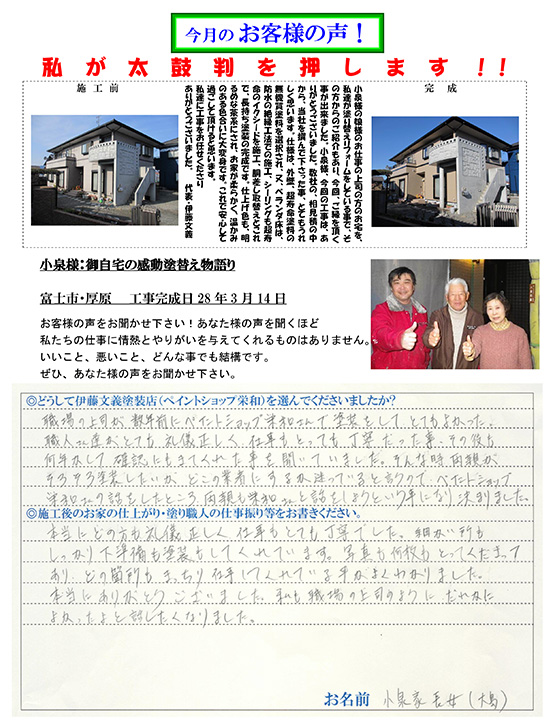 今月の お客様の声！
私 が 太 鼓 判 を 押 し ま す ！！
施 工 前
完 成
小泉様の娘様のお仕事の上司の方のお宅を、
私達が塗り替えリフォームをしている事で、そ
の方からのご紹介もあり、今回、ご縁を頂く
事が出来ました。小泉様、今回の工事は、あ
りがとうございました。数社の、相見積の中
から、当社を選んで下さった事、とてもうれ
しく思います。仕様は、外壁、超寿命塗料の
無機質塗料を選択され、又、ベランダ床は、
防水の絶縁工法での施工、シーリングも超寿
命のイクシードを施工、調差し取替えとこれ
で、長持ち塗装の完成です。仕上げ色も、明
るめな茶系にされ、お家が柔らかく、温かみ
のある色合いに大変身です。これで安心して
過ごして頂けると思います。
私達に工事をお任せくださり
ありがとうございました。 代表・伊藤文義
小泉様：御自宅の感動塗替え物語り
富士市・厚原 工事完成日 28 年 3 月 14 日
お客様の声をお聞かせ下さい！あなた様の声を聞くほど
私たちの仕事に情熱とやりがいを与えてくれるものはありません。
いいこと、悪いこと、どんな事でも結構です。
ぜひ、あなた様の声をお聞かせ下さい。
◎どうして伊藤文義塗装店（ペイントショップ栄和）を選んでくださいましたか？
職場の上司が数年前にペイントショップ栄和さんで塗装をして とてもよかった。
職人さん達がとても礼儀正しく、仕事もとっても丁寧だった事、その後も
何年かして確認にもきてくれた事を聞いていました。そんな時両親が
そろそろ塗装したいが どこの業者にするか迷っていると言うので、ペイントショップ
栄和さんの話をしたところ、両親も栄和さんと話をしようという事になり決りました。
◎施工後のお家の仕上がり・塗り職人の仕事振り等をお書きください。
本当にどの方も礼儀正しく、仕事もとても丁寧でした。細かい所も
しっかり下準備も塗装もしてくれています。写真も何枚もとってくださって
あり、どの箇所もきっちり仕事してくれている事がよくわかりました。
本当にありがとうございました。私も職場の上司のように だれかに
よかったよと話したくなりました。
お名前 小泉家 長女（大島）